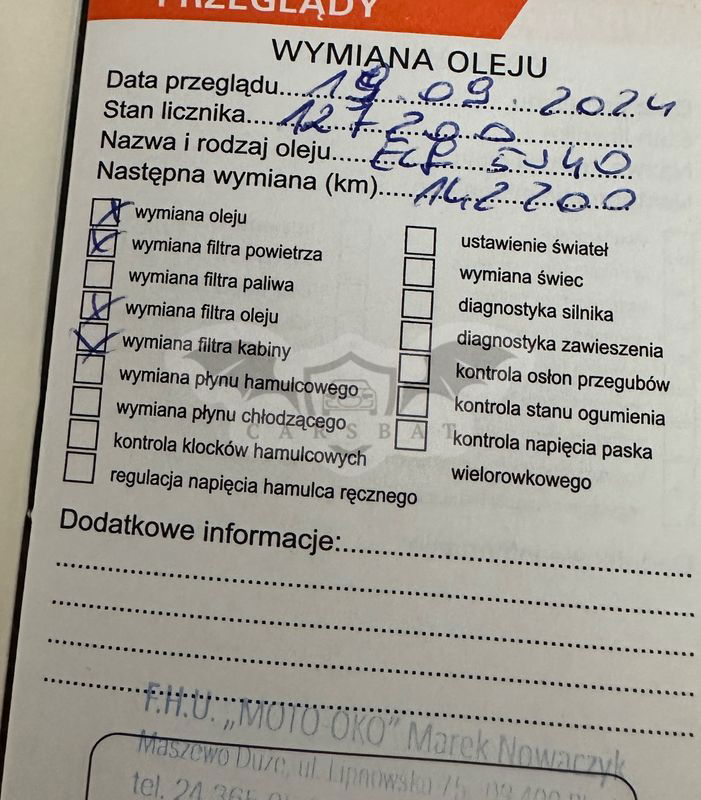 PRZEGLĄDY
WYMIANA OLEJU
Data przeglądu 19.09.2024
Stan licznika 127200
Nazwa i rodzaj oleju ELF 5W40
Następna wymiana (km) 142200
wymiana oleju
wymiana filtra powietrza
wymiana filtra paliwa
wymiana filtra oleju
wymiana filtra kabiny
wymiana płynu hamulcowego
wymiana płynu chłodzącego
kontrola klocków hamulcowych
regulacja napięcia hamulca ręcznego
ustawienie świateł
wymiana świec
diagnostyka silnika
diagnostyka zawieszenia
kontrola osłon przegubów
kontrola stanu ogumienia
kontrola napięcia paska
wielorowkowego
CARSBAT
Dodatkowe informacje:
F.H.U. „MOTO-OKO” Marek Nowaczyk
Maszewo Duże, ul. Lipnowska
tel. 24 365